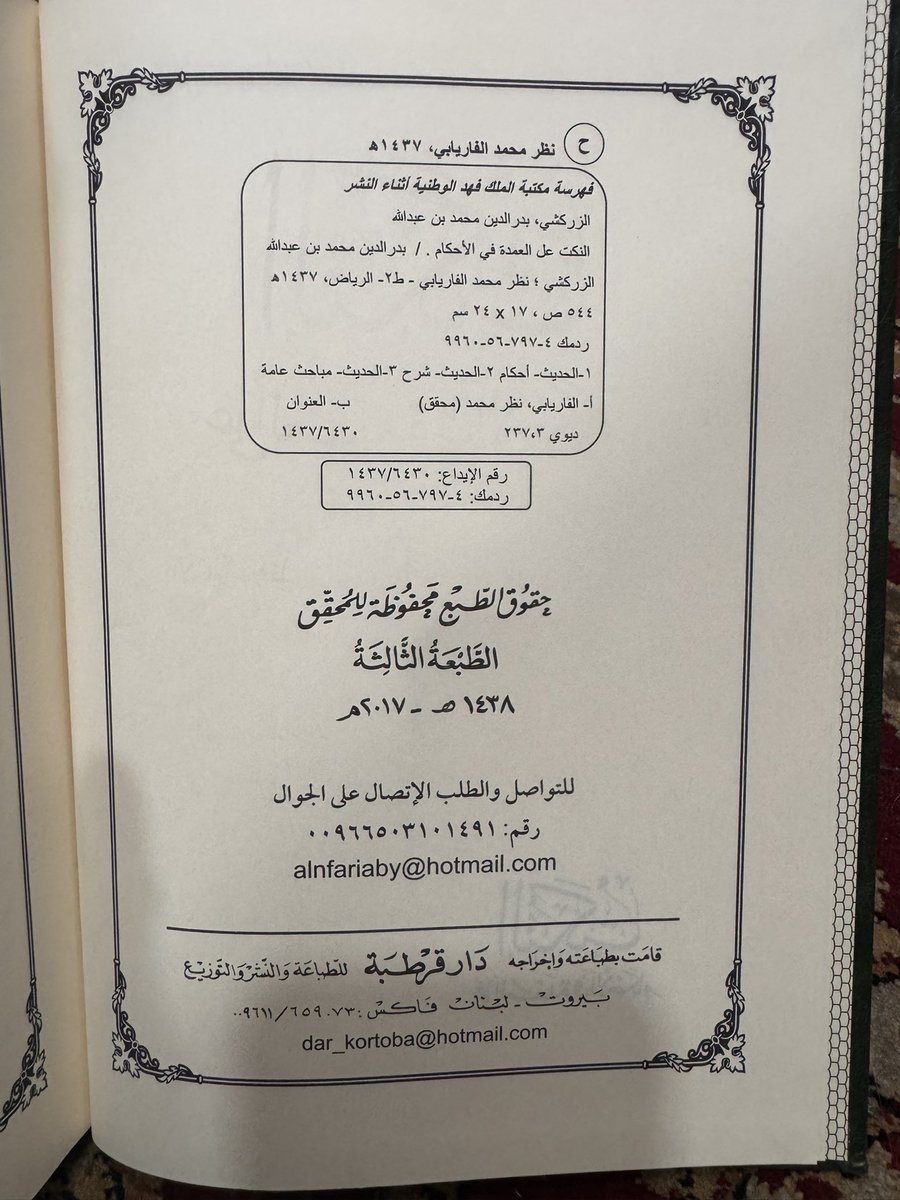 ح نظر محمد الفاريابي، ١٤٣٧هـ
فهرسة مكتبة الملك فهد الوطنية أثناء النشر
الزركشي، بدرالدين محمد بن عبدالله
النكت عل العمدة في الأحكام . / بدرالدين محمد بن عبدالله
الزركشي ؛ نظر محمد الفاريابي - ط٢- الرياض، ١٤٣٧هـ
٥٤٤ ص ، ١٧ x ٢٤ سم
ردمك ٤-٧٩٧-٥٦-٩٩٦٠
١-الحديث- أحكام ٢-الحديث- شرح ٣-الحديث- مباحث عامة
أ- الفاريابي، نظر محمد (محقق) ب- العنوان
ديوي ٢٣٧،٣ ١٤٣٧/٦٤٣٠
رقم الإيداع: ١٤٣٧/٦٤٣٠
ردمك: ٤-٧٩٧-٥٦-٩٩٦٠
حقوق الطبع محفوظة للمحقق
الطَّبْعَةُ الثَّالِثَةُ
١٤٣٨ هـ - ٢٠١٧م
للتواصل والطلب الإتصال على الجوال
رقم: ٠٠٩٦٦٥٠٣١٠١٤٩١
alnfariaby@hotmail.com
قامت بطباعته وإخراجه دار قرطبة للطباعة والنشر والتوزيع
بيروت - لبنان فاكس: ٠٠٩٦١١/٦٥٩٠٧٣
dar_kortoba@hotmail.com